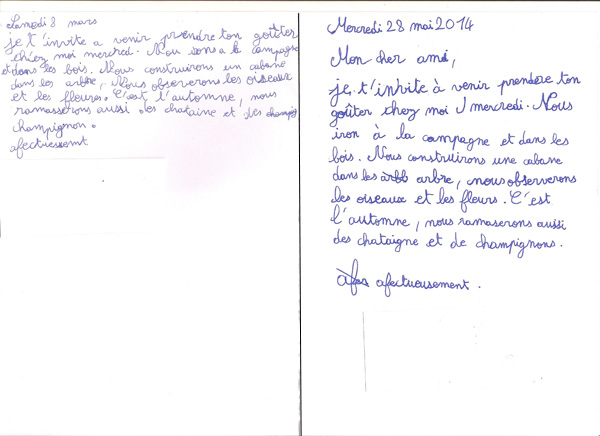 Samedi 8 mars
je t'invite a venir prendre ton goûter
chéez moi mercred. Nou sons a la campagne
et dans les bois. Nous construirons un cabane
dans les arbre, Nous observerons les oiseaux
et les fleurs. C'est l'automne, nous
ramasserons aussi des chataine et des champig
champignon.
afectuessemt
Mercredi 28 mai 2014
Mon cher ami,
je t'invite à venir prendre ton
goûter chez moi mercredi. Nous
iron à la campagne et dans les
bois. Nous construirons une cabane
dans les arbre, nous observerons
les oiseaux et les fleurs. C'est
l'automne, nous ramaserons aussi
des chataigne et de champignons.
afectueusement.